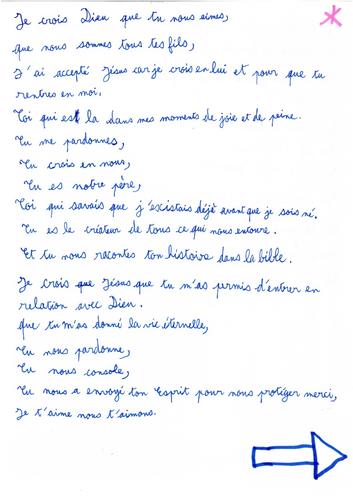 Je crois Dieu que tu nous aimes,
que nous sommes tous tes fils,
J'ai accepté Jésus car je crois en lui et pour que tu
rentres en moi.
Toi qui est la dans mes moments de joie et de peine.
Tu me pardonnes,
Tu crois en nous,
Tu es notre père,
Toi qui savais que j'existais déjà avant que je sois né.
Tu es le créateur de tous ce qui nous entoure.
Et tu nous racontes ton histoire dans la bible.
Je crois que Jésus que tu m'as permis d'entrer en
relation avec Dieu.
que tu m'as donné la vie éternelle,
Tu nous pardonne,
Tu nous console,
Tu nous a envoyé ton Esprit pour nous protéger merci,
Je t'aime nous t'aimons.